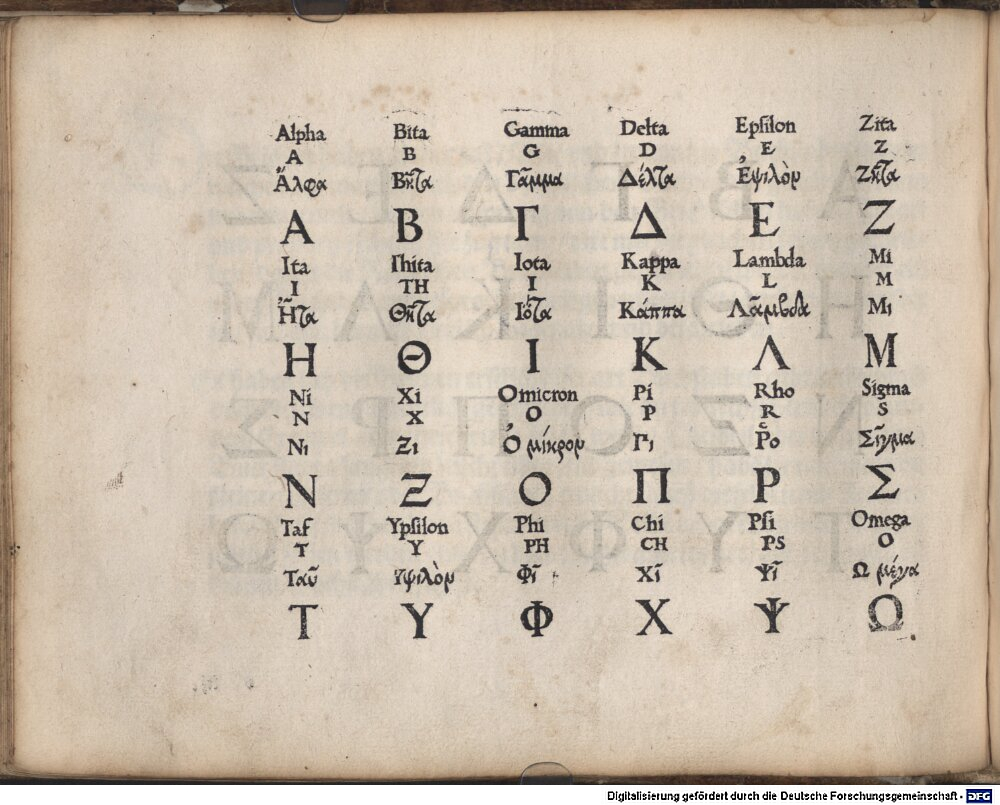 Alpha Bita Gamma Delta Epſilon Zita
A B G D E Z
Ἄλφα Βῆτα Γᾶμμα Δέλτα Ἐψιλὸν Ζῆτα
Α Β Γ Δ Ε Ζ
Ita Thita Iota Kappa Lambda Mi
I TH I K L M
Ἦτα Θῆτα Ἰῶτα Κάππα Λᾶμβδα Μι
Η Θ Ι Κ Λ Μ
Ni Xi Omicron Pi Rho Sigma
N X O P R S
Νι Ξι Ὀ μίκρον Πι Ῥο Σῖγμα
Ν Ξ Ο Π Ρ Σ
Taf Ypſilon Phi Chi Pſi Omega
T Y PH CH PS O
Ταῦ Υψιλὸν Φῖ Χῖ Ψῖ Ω μέγα
Τ Υ Φ Χ Ψ Ω
Digitalisierung gefördert durch die Deutsche Forschungsgemeinschaft - DFG